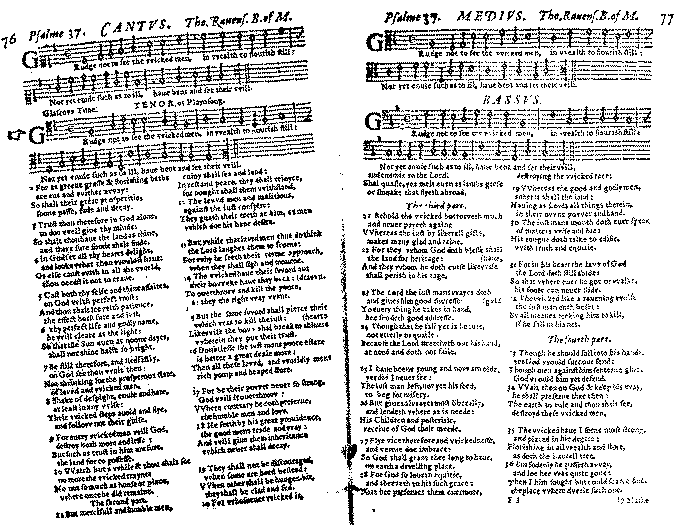 76 Psalme 37. CANTVS. Tho. Rauens. B. of M.
GRudge not to see the wicked men, in wealth to flourish still:
Nor yet enuie such as to ill, haue bent and set their will.
Glascow Tune. TENOR, or Playnsong.
GRudge not to see the wicked men, in wealth to flourish still:
Nor yet enuie such as to ill, haue bent and set their will.
2 For as greene grasse & florishing herbs
are cut and wither away:
So shall their great prosperitie,
soone passe, fade and decay.
3 Trust thou therefore in God alone,
to doe well giue thy minde:
So shalt thou haue the land as thine,
and there sure foode shalt finde.
4 In God set all thy hearts delight,
and looke what thou wouldst haue:
Or else canst wish in all the world,
thou needst it not to craue.
5 Cast both thy selfe and thine affaires,
on God with perfect trust:
And thou shalt see with patience,
the effect both sure and iust.
6 Thy perfect life and godly name,
he will cleare as the light:
So that the Sun euen at noone dayes,
shall not shine halfe so bright.
7 Be still therefore, and stedfastly,
on God see thou wait then:
Not shrinking for the prosperous state,
of lewd and wicked men.
8 Shake off despight, enuie and hate,
at least in any wise:
Their wicked steps auoid and flye,
and follow not their guise.
9 For euery wicked man will God,
destroy both more and lesse:
But such as trust in him are sure,
the land for to possesse.
10 Watch but a while & thou shalt see
no more the wicked trayne:
No not so much as house or place,
where once he did remaine.
The second part.
11 But mercifull and humble men,
enioy shall sea and land:
In rest and peace, they shall reioyce,
for nought shall them withstand,
12 The lewd men and malicious,
against the iust conspire:
They gnash their teeth at him, as men
which doe his bane desire.
13 But while that lewd men thus do think
the Lord laughes them to scorne:
For why he sees their terme approch,
when they shall sigh and mourne.
14 The wicked haue their sword out
their bow eke haue they bent:
To ouerthrow and kill the poore,
as they the right way went.
15 But the same sword shall pierce their
which was to kill the iust: (hearts
Likewise the bow shall breake to shiuers
wherein they put their trust.
16 Doubtlesse the iust mans poore estate
is better a great deale more:
Then all these lewd, and worldly mens
rich pomp and heaped store.
17 For be their power neuer so strong,
God will it ouerthrow:
Where contrary he doth preserue,
the humble men and low.
18 He seeth by his great prouidence,
the good mens trade and way:
And will giue them inheritance
which neuer shall decay.
19 They shall not be discouraged,
when some are hard bested:
When other shall be hunger-bit,
they shall be clad and fed.
20 For whosoeuer wicked is,
Psalme 37. MEDIVS. Tho. Rauens. B. of M. 77
GRudge not to see the wicked men, in wealth to flourish still:
Nor yet enuie such as to ill, haue bent and set their will.
BASSVS.
GRudge not to see the wicked men, in wealth to flourish still:
Nor yet enuie such as to ill, haue bent and set their will.
and enemie to the Lord:
Shall quaile, yea melt euen as lambs grese
or smoake that flyeth abroad.
The third part.
21 Behold the wicked borroweth much
and neuer payeth againe
Whereas the iust by liberall gifts,
makes many glad and faine.
22 For they whom God doth blesse shall
the land for heritage: (haue,
And they whom he doth curse likewise
shall perish in his rage,
23 The Lord the iust mans wayes doth
and giues him good successe: (guid
To euery thing he takes in hand,
he sendeth good addresse.
24 Though that he fall yet is he sure,
not vtterly to quaile:
Because the Lord stretcheth out his hand,
at need and doth not faile.
25 I haue beene young and now am olde,
yet did I neuer see:
The iust man left, nor yet his seed,
to beg for misery.
26 But giues alwayes most liberally,
and lendeth where as is neede:
His Children and posteritie,
receiue of God their meede.
27 Flye vice therefore and wickednesse,
and vertue doe imbrace:
So God shall grant thee long to haue,
on earth a dwelling place.
28 For God so loueth equitie,
and sheweth to his such grace:
That he preserues them euermore,
destroying the wicked race:
29 Whereas the good and godly men,
inherit shall the land:
Hauing as Lords all things therein,
in their owne power and hand.
30 The iust mans mouth doth euer speak
of matters wise and hie:
His tongue doth talke to edifie,
with truth and equitie.
31 For in his heart the law of God
the Lord doth still abide:
So that where euer he goe or walke,
his foote can neuer slide.
32 The wicked like a rauening wolfe
the iust man doth beset:
By all meanes seeking him to kill,
if he fall in his net.
The fourth part.
33 Though he should fall into his hands,
yet God would succour send:
Though men against him sentence giue,
God would him yet defend.
34 Wait thou on God & keep his way,
he shall preserue thee then:
The earth to rule and thou shalt see,
destroyd these wicked men,
35 The wicked haue I seene most strong,
and placed in hie degree:
Florishing in all wealth and store,
as doth the Laurell tree.
36 But sodenly he passed away,
and loe hee was quite gone:
Then I him sought but could scarce find,
the place where dwelt such one.